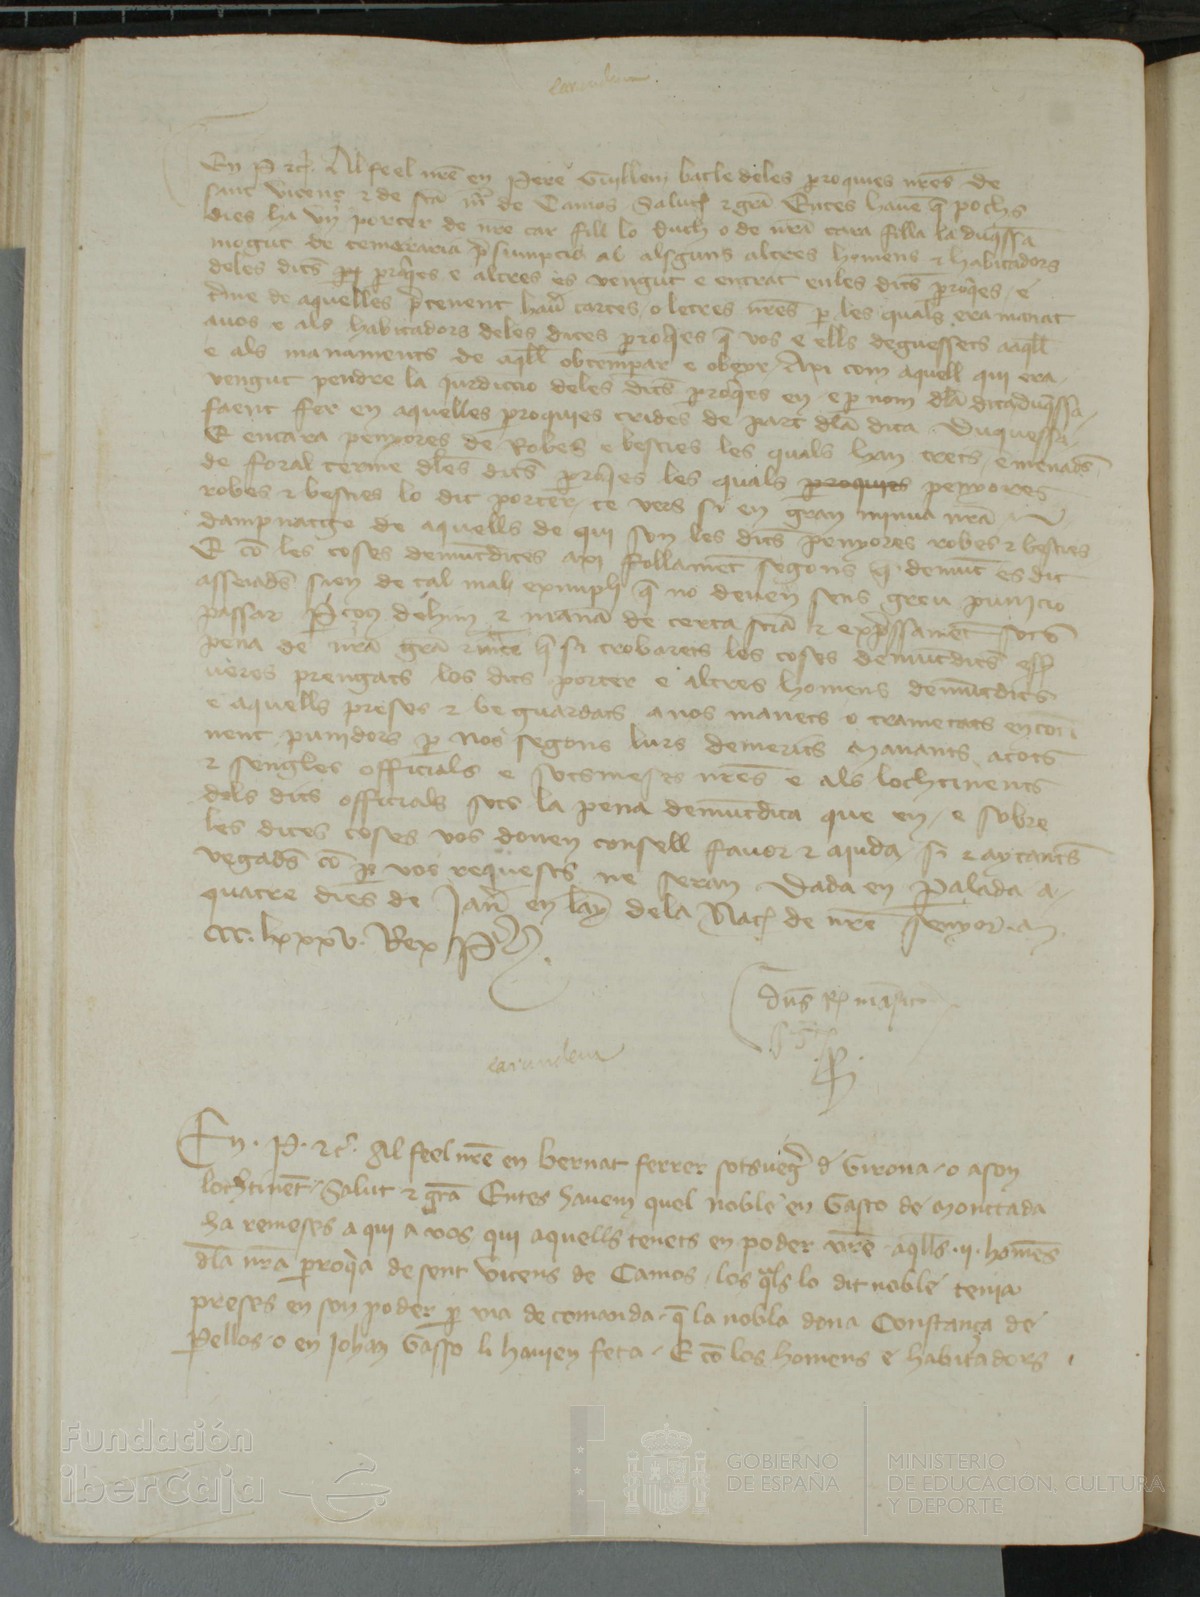 earundem
En P. etc̃. Al feel nr̃e en Pere Guillem batle deles ꝑroquies nr̃es de
sant Vicenç ⁊ de sc̃a Mª de Camos Salut ⁊ gr̃a Entes hauẽ q̃ pochs
dies ha vn porter de nr̃e car fill lo duch o de nr̃a cara filla la duq̃ssa
mogut de temeraria p̃sumpcio ab alsguns altres homens ⁊ habitadors
deles dictes ꝑroq̃es e altres es vengut e entrat enles dites ꝑroq̃es e
t̃me de aquelles p̃tenent hauer cartes o letres nr̃es ꝑ les quals era manat
a vos e als habitadors deles dites ꝑroq̃es q̃ vos e ells deguessets aq̃ll
e als manaments de aq̃ll obtemꝑar e obeyr Axi com aquell qui era
vengut pendre la jurediccio deles dites ꝑroq̃es en e ꝑ nom dl̃a dita duq̃ssa
faent fer en aquelles ꝑroquies crides de part dl̃a dita Duquessa
E encara penyores de Robes e besties les quals han trets e menads
de foral terme dl̃es dites ꝑroq̃es les quals ꝑroquies penyores
robes ⁊ besties lo dit porter te vers si en gran minua nr̃a
dampnatge de aquells de qui son les dites penyores robes ⁊ besties
E cõ les coses demũtdites axi follamẽt segons q̃ demũt es dit
assaiads sien de tal mal eximpli q̃ no deuen sens greu punicio
passar P̃ço dehim ⁊ manã de certa sc̃ia ⁊ exp̃ssamẽt sots
pena de nr̃a gr̃a ⁊ m̃ce q̃ si trobarets les coses demũtdites esser
veres prengats los dits porter e altres homens demũtdits
e aquells preses ⁊ be guardats a nos manets o trametats enconti
nent punidors ꝑ nos segons lurs demerits Manants a tots
⁊ sengles officials e sotsmeses nr̃es e als lochtinents
dels dits officials sots la pena demũtdita que en e sobre
les dites coses vos donen consell fauor ⁊ aiuda si ⁊ aytants
vegads cõ ꝑ vos request̃s ne seran Dada en Palada a
quatre dies de Jañ en lañy dela Nat̃ de nr̃e senyor M
CCC.lxxxv. Rex P̃
dñs R̃
earundem
En. P. ⁊c̃. Al feel nr̃e en bernat ferrer sotsueg̃ de Girona o a son
lochtinẽt Salut ⁊ gr̃a Entes hauem quel noble en Gasto de Montcada
ha remeses a qui a vos qui aquells tenets en poder vr̃e aq̃lls .ij. homẽs
dl̃a nr̃a ꝑroq̃a de sent Vicens de Camos los q̃ls lo dit noble tenia
preses en son poder ꝑ via de comanda q̃ la nobla dona Constança de
Pellos o en Johan Gasso li hauien feta E cõ los homens e habitadors
Fundación
iberCaja
GOBIERNO
DE ESPAÑA
MINISTERIO
DE EDUCACIÓN, CULTURA
Y DEPORTE